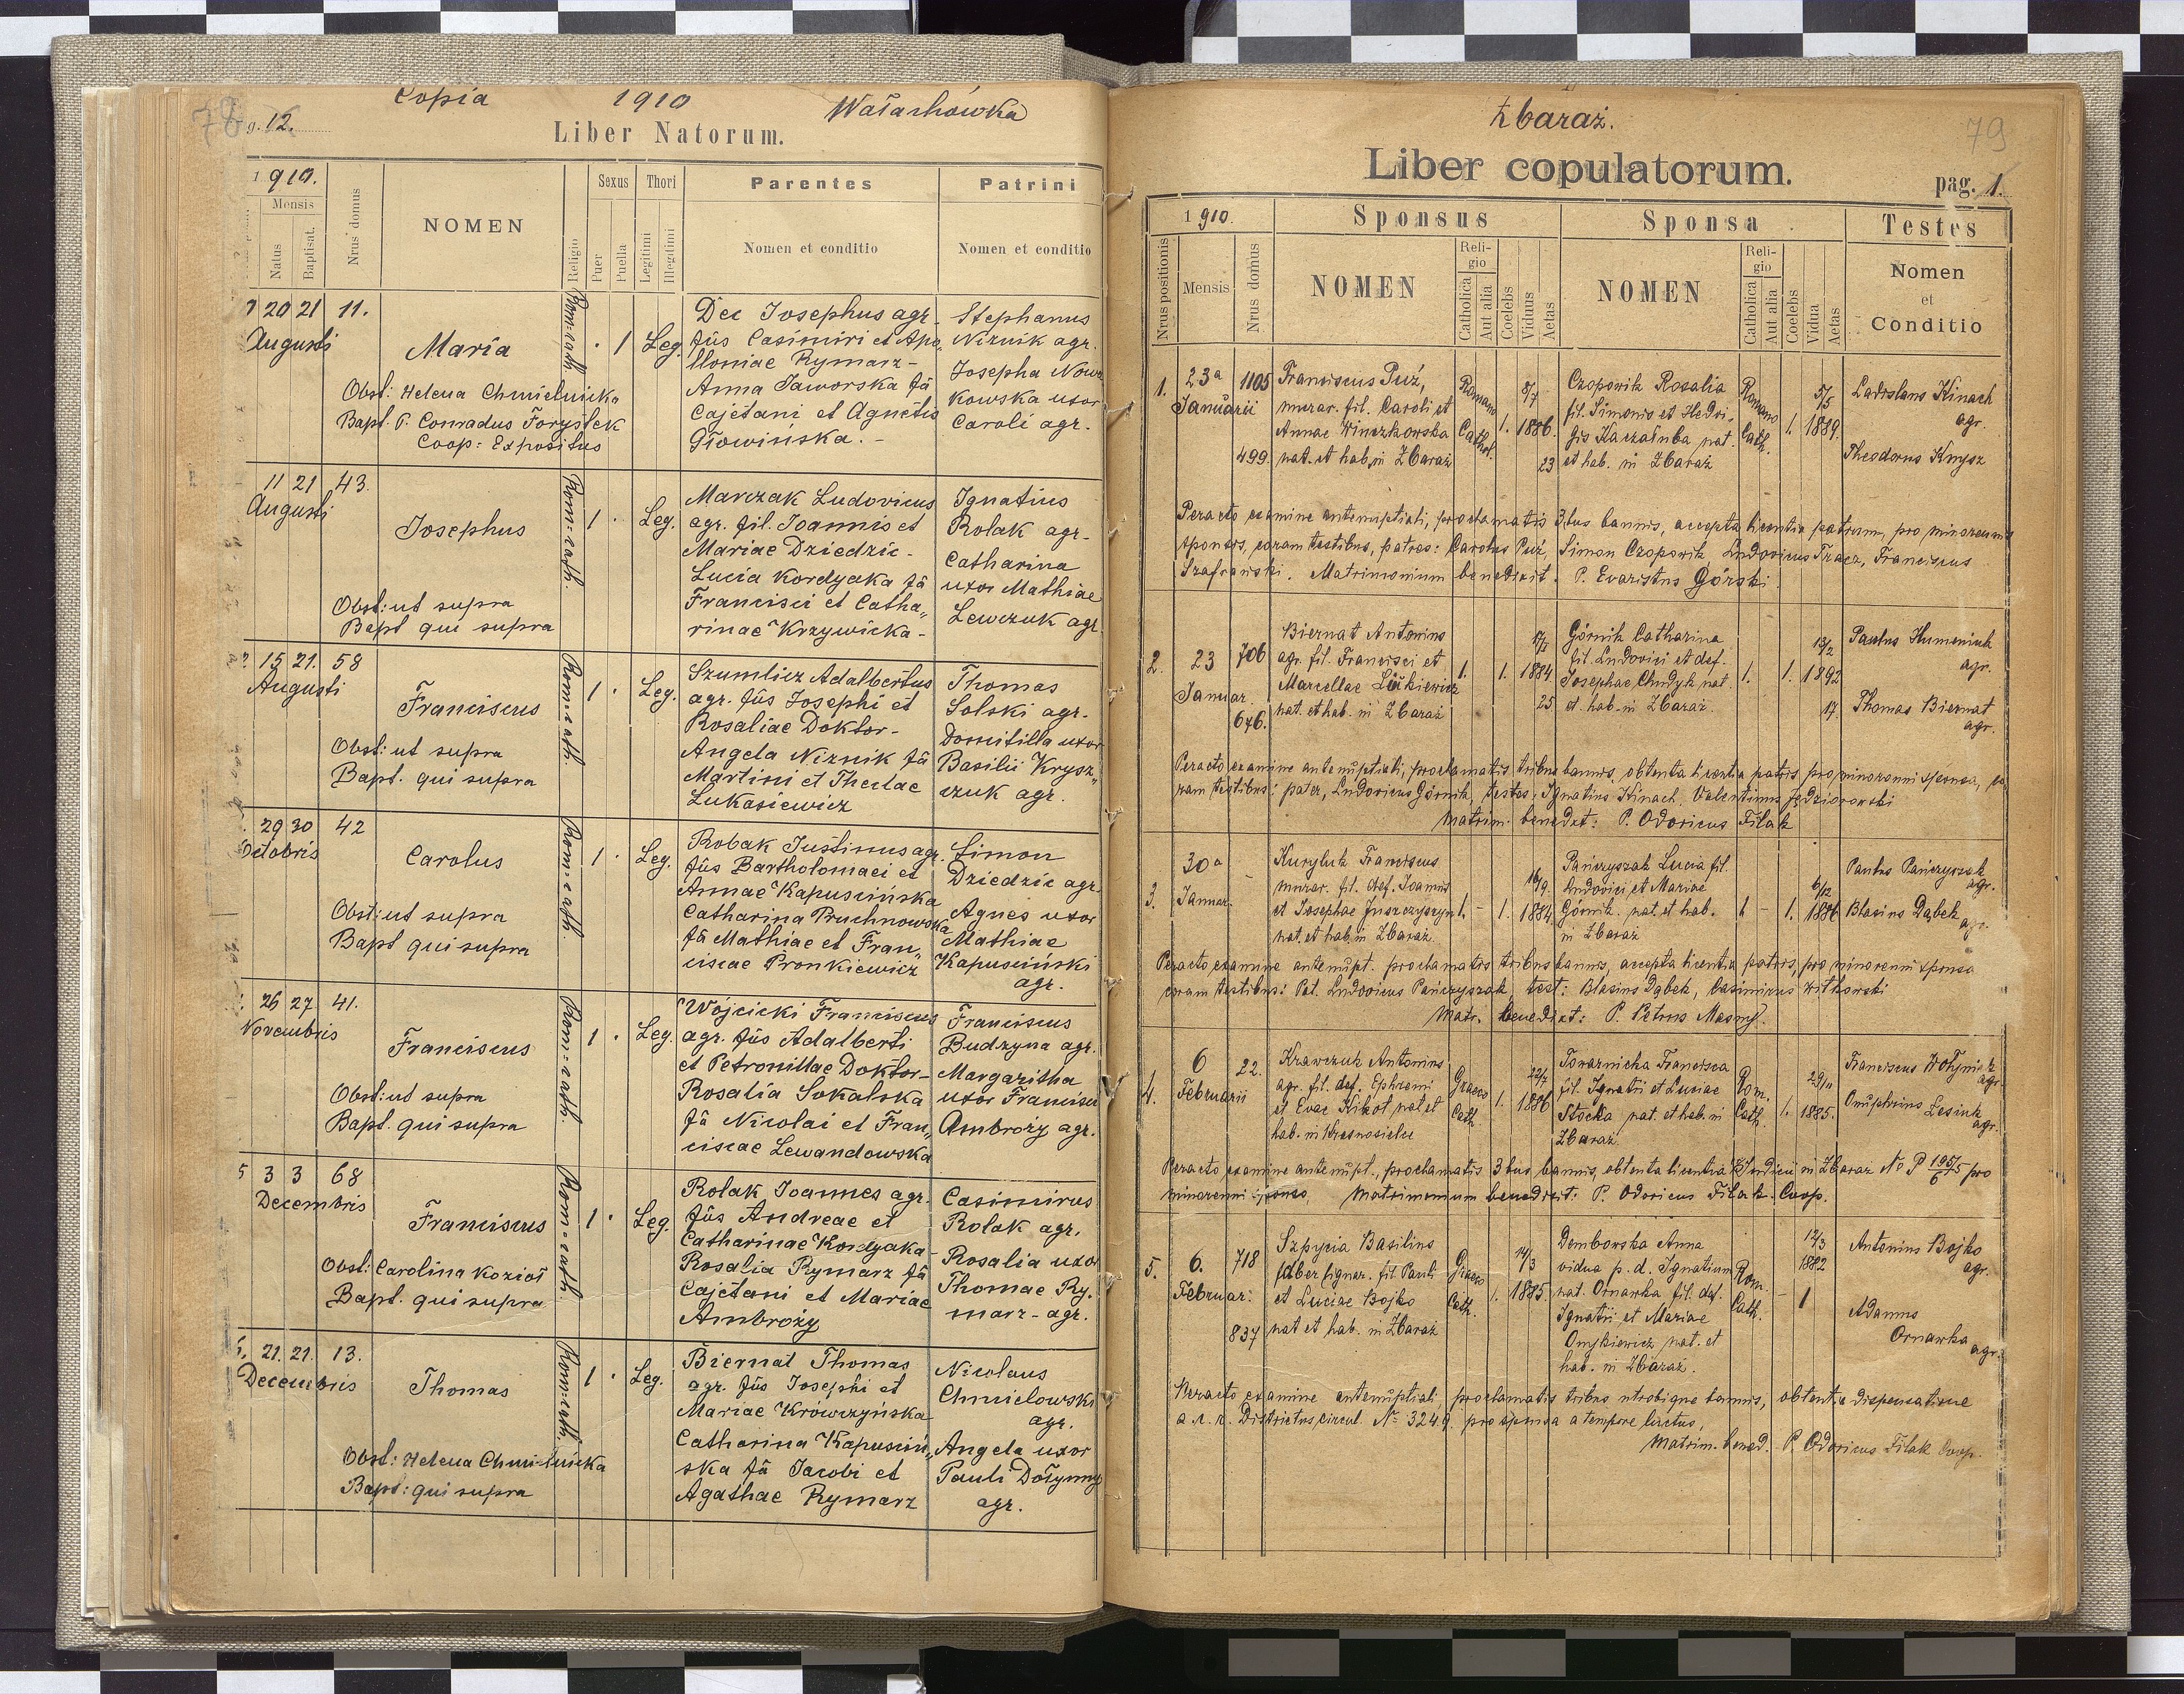 78
g. 12.
Copia 1910 Wałachówka
Liber Natorum.
1910.
Mensis
Natus
Baptisat.
Nrus domus
NOMEN
Religio
Sexus
Puer
Puella
Thori
Legitimi
Illegitimi
Parentes
Nomen et conditio
Patrini
Nomen et conditio
20 21 11.
Augusti
Maria
Rom: cath.
1 Leg.
Obst: Helena Chmielnicka
Bapt. P. Conradus Forystek
Coop: Expositus
Dec Josephus agr.
fūs Casimiri et Apo
lloniae Rymarz-
Anna Jaworska fā
Cajetani et Agnetis
Głowińska.-
Stephanus
Niznik agr.
Josepha Nowa
kowska uxor
Caroli agr.
11 21 43.
Augusti
Josephus
Rom: cath.
1 Leg.
Obst: ut supra
Bapt qui supra
Marczak Ludovicus
agr. fil. Joannis et
Mariae Dziedzic-
Lucia Kordyaka fā
Francisci et Catha„
rinae Krzywicka-
Ignatius
Rolak agr-
Catharina
uxor Mathiae
Lewczuk agr.
15 21. 58
Augusti
Franciscus
Rom: cath.
1 Leg.
Obst: ut supra
Bapt. qui supra
Szumlicz Adalbertus
agr. fūs Josephi et
Rosaliae Doktor-
Angela Niznik fā
Martini et Theclae
Lukasiewicz
Thomas
Solski agr.
Domitilla uxor
Basilii Krysz„
czuk agr.
29 30 42
Octobris
Carolus
Rom: cath.
1 Leg.
Obst: ut supra
Bapt qui supra
Robak Justinus agr.
fūs Bartholomaei et
Annae Kapuscińska
Catharina Pruchnowska
fā Mathiae et Fran„
ciscae Pronkiewicz
Simon
Dziedzic agr.
Agnes uxor
Mathiae
Kapusciński
agr.
26 27 41.
Novembris
Franciscus
Rom: cath.
1 Leg.
Obst: ut supra
Bapt. qui supra
Wójcicki Franciscus
agr. fūs Adalberti
et Petronillae Doktor-
Rosalia Sokalska
fā Nicolai et Fran„
ciscae Lewandowska
Franciscus
Budzyna agr.
Margaritha
uxor Francisci
Ambrozy agr.
3 3 68
Decembris
Franciscus
Rom: cath.
1 Leg.
Obst: Carolina Kozioł
Bapt. qui supra
Rolak Joannes agr.
fūs Andreae et
Catharinae Kordyaka-
Rosalia Rymarz fā
Cajetani et Mariae
Ambroży
Casimirus
Rolak agr.
Rosalia uxor
Thomae Ry-
marz- agr.
21. 21. 13.
Decembris
Thomas
Rom: cath.
1 Leg.
Obst: Helena Chmielnicka
Bapt: qui supra
Biernat Thomas
agr. fūs Josephi et
Mariae Krówczyńska
Catharina Kapusciń„
ska fā Jacobi et
Agathae Rymarz
Nicolaus
Chmielowski
agr.
Angela uxor
Pauli Dołynny
agr.
Zbaraż.
79
Liber copulatorum.
pag. 1.
1910.
Nrus positionis
Mensis
Nrus domus
Sponsus
NOMEN
Religio
Catholica
Aut alia
Coelebs
Viduus
Aetas
Sponsa
NOMEN
Religio
Catholica
Aut alia
Coelebs
Vidua
Aetas
Testes
Nomen
et
Conditio
1. 23a Januarii
1105
499
Franciscus Puź,
murar. fil. Caroli et
Annae Winczkowska
nat. et hab. in Zbaraż
Romano Cathol.
1. 8/7 1886. 23
Czopowik Rosalia
fil. Simonis et Hedvi-
gis Kaczałuba nat.
et hab. in Zbaraż
Romano Cath.
1. 5/5 1889.
Ladislaus Kinach
agr.
Theodorus Knysz
Peracto examine antenuptiali, proclamatis 3bus bannis, accepta licentia patrum, pro minorennis
sponsis, coram testibus, patres: Carolus Puź, Simon Czopowik, Ludovicus Tracz, Franciscus
Szafrański. Matrimonium benedixit. P. Evaristus Górski.
2. 23 Januar.
706
646.
Biernat Antonius
agr. fil. Francisci et
Marcellae
nat. et hab. in Zbaraż
1. 1. 17/1 1884. 25
Górnik Catharina
fil. Ludovici et def.
Josephae Chudyk nat.
et hab. in Zbaraż.
1. 1. 13/2 1892 17.
Paulus Humeniuk
agr.
Thomas Biernat
agr.
Peracto examine antenuptiali, proclamatis tribus bannis, obtenta licentia patris pro minorenni sponsa, co
ram testibus: pater, Ludovicus Górnik, testes: Ignatius Kinach, Valentinus Jędziorowski
Matrim. benedxt: P. Odoricus Filak
3. 30a Januar.
Kuryluk Franciscus
murar. fil. def. Joannis
et Josephae Juszczyszyn
nat. et hab. in Zbaraż.
1. - 1. 16/9. 1884.
Pańczyszak Lucia fil.
Ludovici et Mariae
Górnik. nat. et hab.
in Zbaraż
1 - 1. 6/12 1886
Paulus Pańczyszak
agr.
Blasius Dąbek
agr.
Peracto examine antenupt. proclamatis tribus bannis, accepta licentia patris, pro minorenni sponsa
coram testibus: Pat. Ludovicus Pańczyszak, test: Blasius Dąbek, Casimirus Witkowski
Matr. benedixt: P. Petrus Mazny.
4. 6 Februarii
22.
Krawczuk Antonius
agr. fil. def. Ephremi
et Evae Kikot nat et
hab. in Krasnosielce
Graeco Cath.
1. 22/7 1886
Towarnicka Francisca
fil. Ignatii et Luciae
Stocka nat. et hab. in
Zbaraż.
Rom. Cath.
1. 29/11 1885.
Franciscus Wołyniuk
agr.
Onuphrius Lesiuk
agr.
Peracto examine antenupt., proclamatis 3bus bannis, obtenta licentia Judicii in Zbaraż No P 195/5 6 pro
minorenni sponso, Matrimonium benedixit: P. Odoricus Filak. Coop.
5. 6. Februar.
718
837
Szpycia Basilius
faber lignar. fil. Pauli
et Luciae Bojko
nat et hab. in Zbaraż
Graeco Cath.
1. 14/3 1885.
Dembowska Anna
vidua p. d. Ignatium
nat. Ornawka fil. def.
Ignatii et Mariae
Onykiewicz nat. et
hab. in Zbaraż.
Rom. Cath.
- 1 12/3 1882
Antonius Bojko
agr.
Adamus
Ornawka
agr.
Peracto examine antenuptiali, proclamatis tribus utrobique bannis, obtenta dispensatione
a c. r. Districtus, circul. No 3249. pro sponsa a tempore luctus,
Matrim. bened. P. Odoricus Filak Coop.